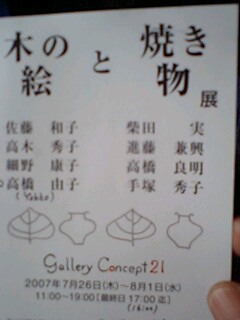 木の絵と焼き物展
佐藤 和子 柴田 実
高木 秀子 進藤 兼興
細野 康子 高橋 良明
高橋 由子 手塚 秀子
(Yukko)
Gallery Concept 21
2007年7月26日(木)〜8月1日(水)
11:00〜19:00[最終日17:00迄]